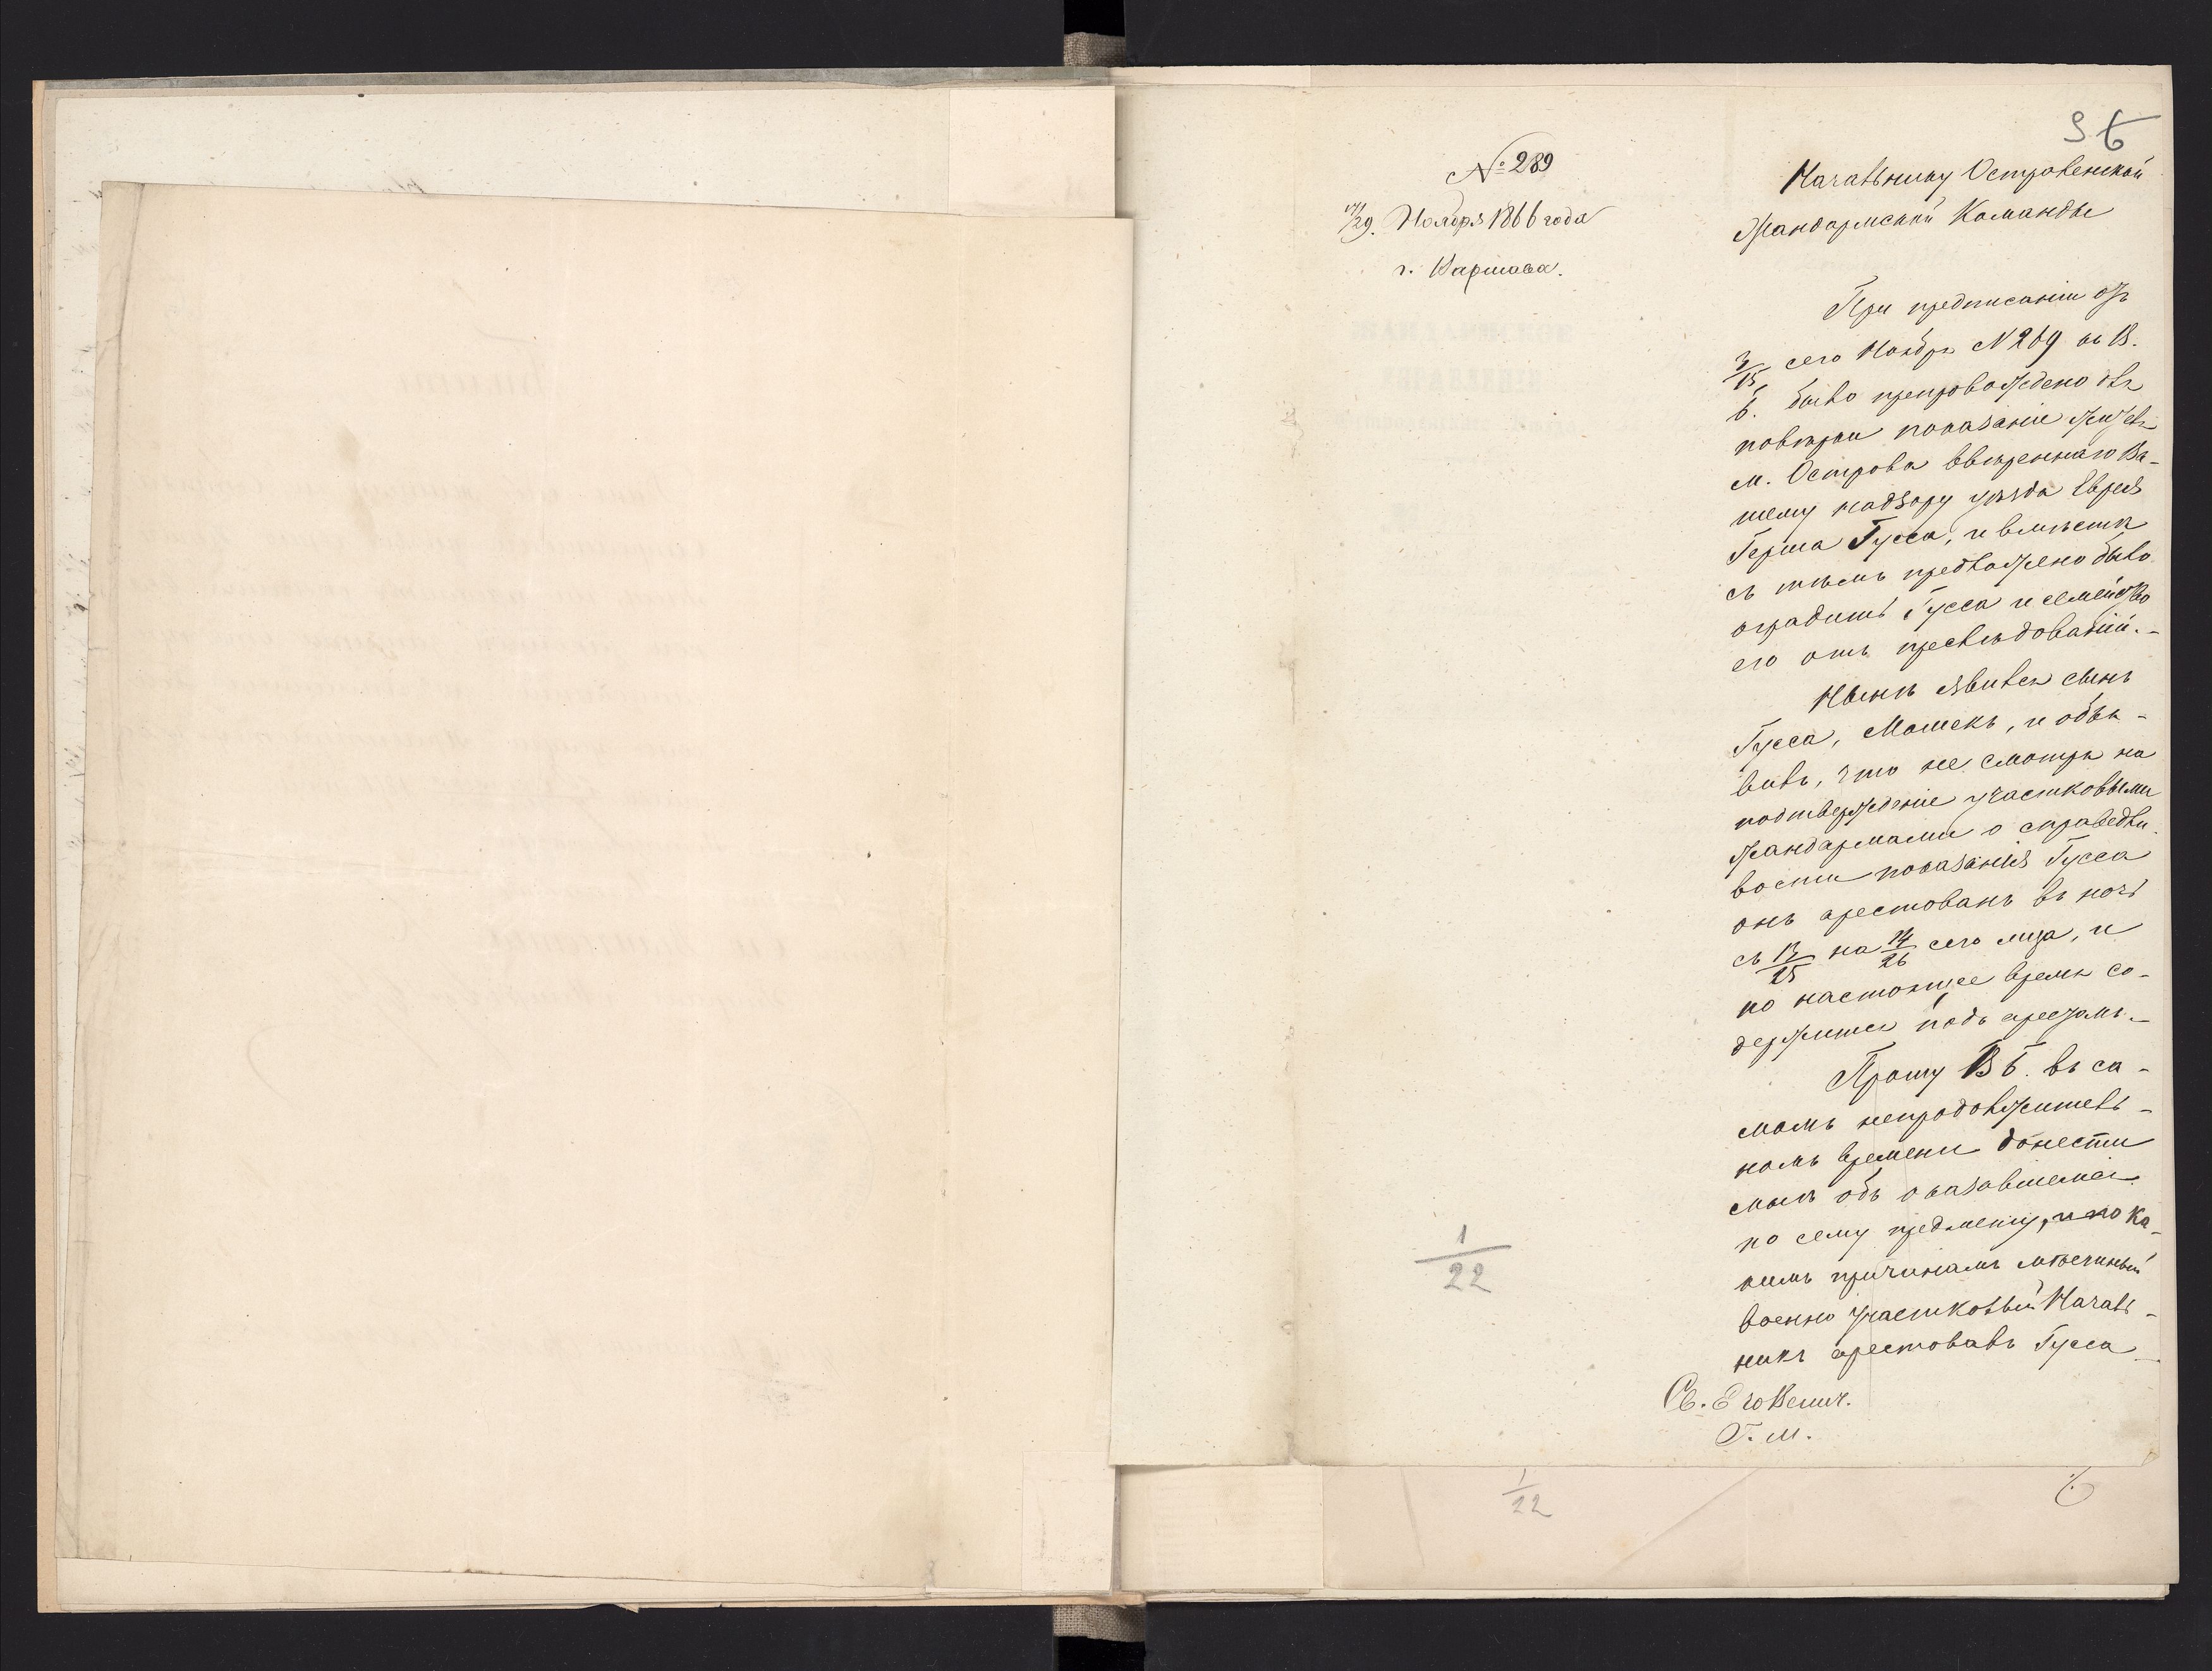 9 6
№ 289
17/29. Ноября 1866 года
г. Варшава.
Начальнику Островенской
Жандармской Команды
При предписаніи отъ
3/15 сего Ноября № 269 къ В.
Б. было препровождено для
повѣрки показаніе жителя
м. Острова ввѣреннаго Ва-
шему надзору уѣзда Еврея
Герша Гусса, и вмѣстѣ
съ тѣмъ предложено было
оградить Гусса и семейство
его отъ преслѣдованій.-
Нынѣ явился сынъ
Гусса, Мошекъ, и объя-
вилъ, что не смотря на
подтвержденіе участковыми
жандармами о справедли-
вости показанія Гусса
онъ арестованъ въ ночь
съ 13/25 на 14/26 сего мца, и
по настоящее время со-
держится подъ арестомъ.-
Прошу В Б. въ са-
момъ непродолжитель-
номъ времени донести
мнѣ объ оказавшемся
по сему предмету, и по ка-
кимъ причинамъ мѣстный
военно участковый Началь-
никъ арестовалъ Гусса
Св. Его Велич.
Г. М.
1/22
1/22
6